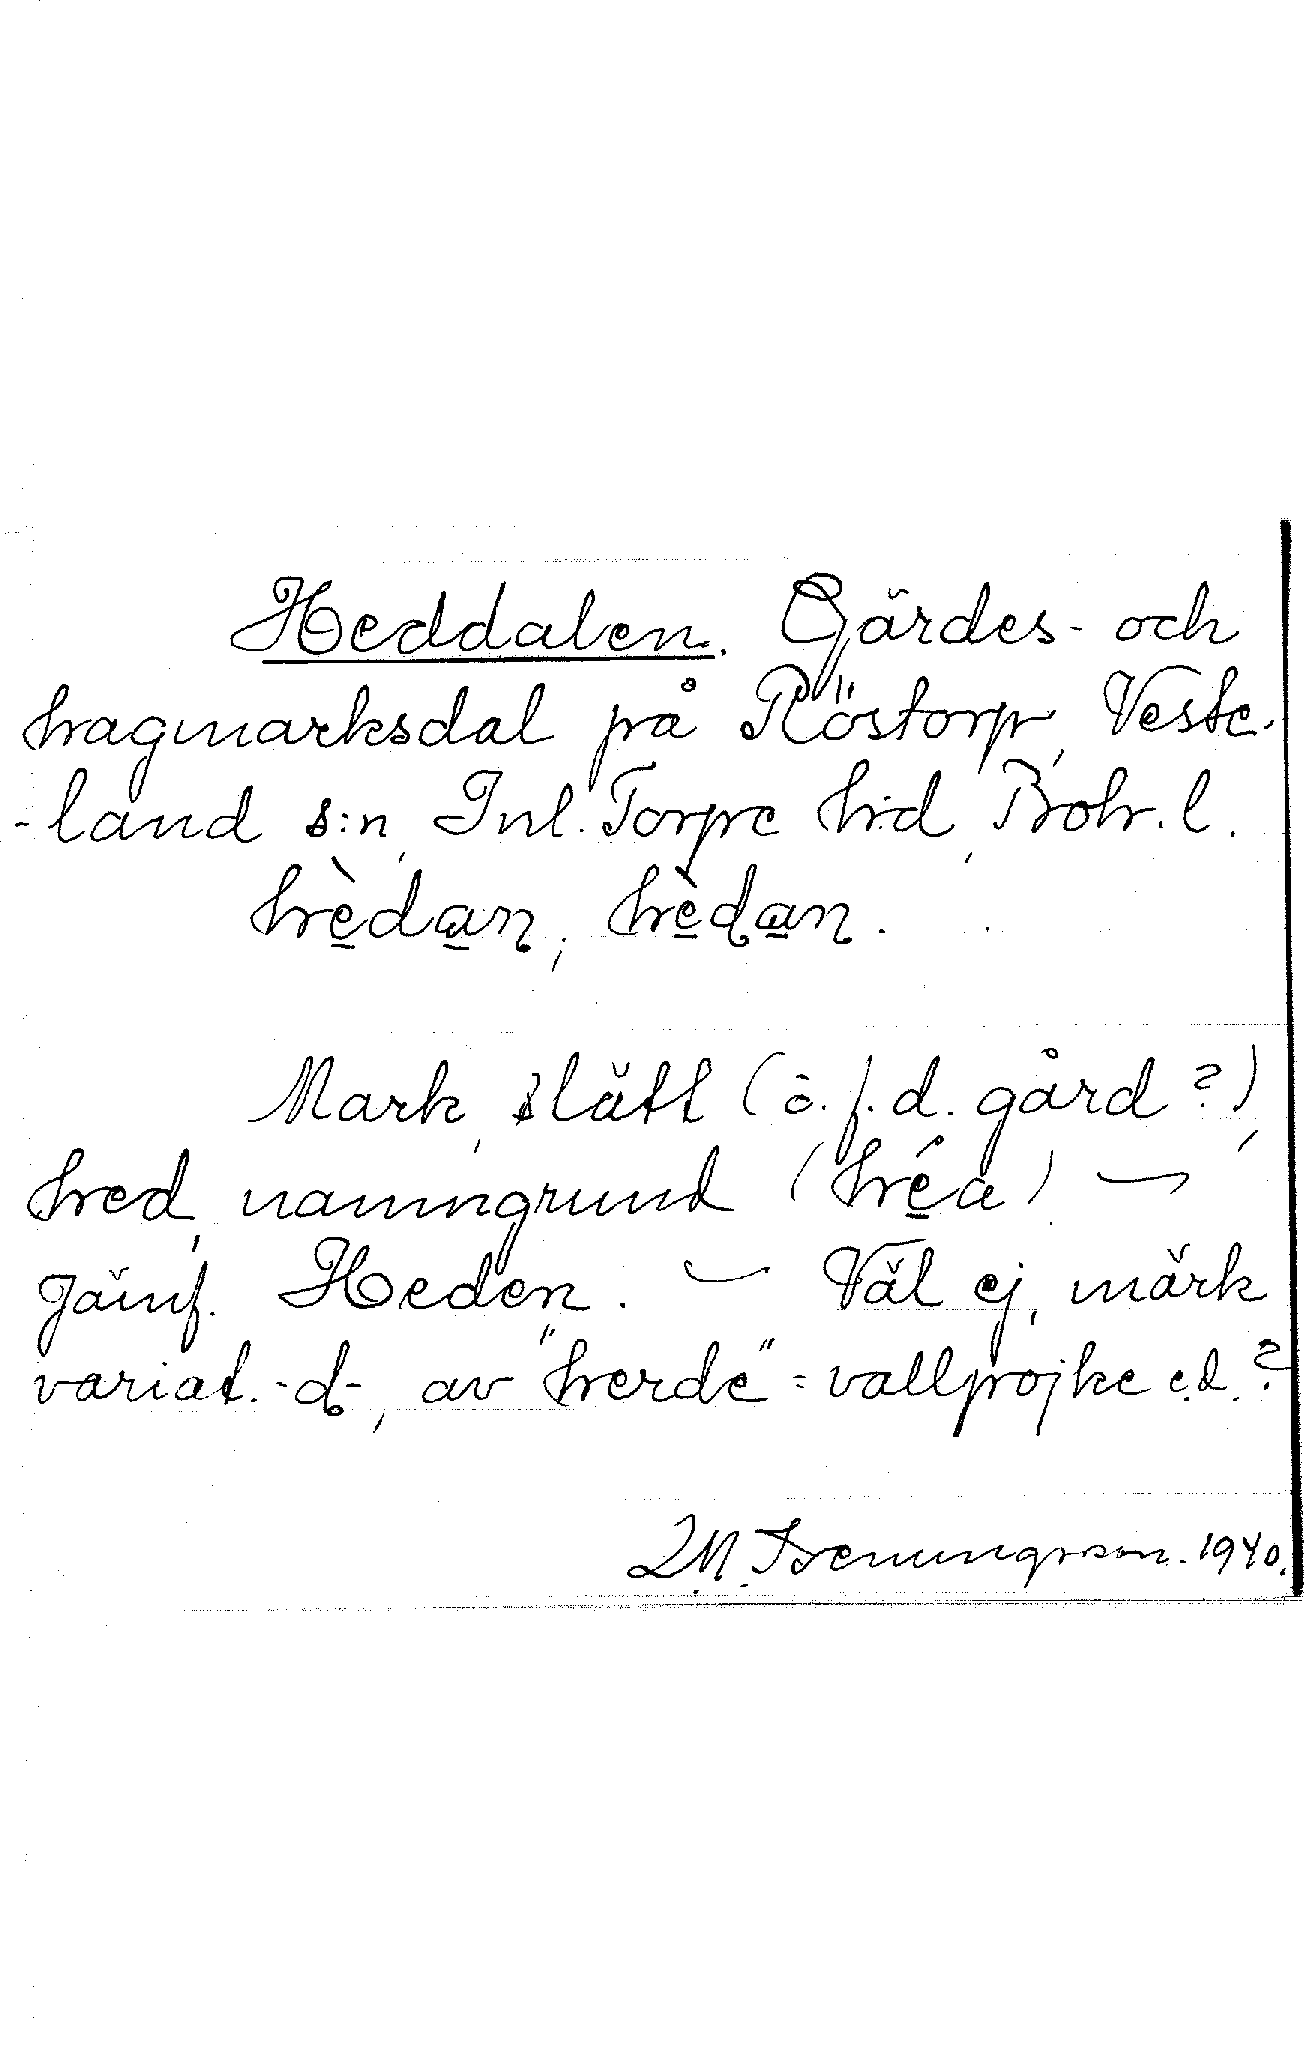 Heddalen. Gärdes- och
hagmarksdal på Röstorp, Veste-
-land s:n, Inl. Torpe h:d, Boh. l.
hèdan, hèdan.
Mark, slätt (ö. f. d. gård?),
hed, namngrund (héa) —
Jämf. Heden. — Väl ej, märk
variat. -d-, av "herde" = vallpojke e.d.?
1940.